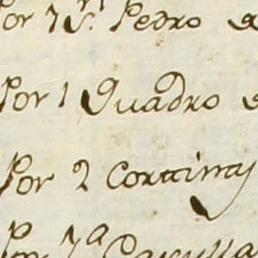 Por 1 Sn. Pedro
Por 1 Quadro
Por 2 Cortinas
Por 1a